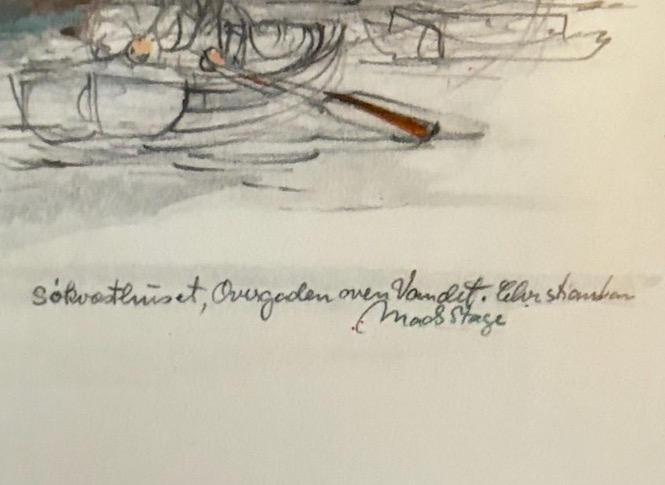 Søkvæsthuset, Overgaden oven Vandet. Christianshavn
Mads Stage